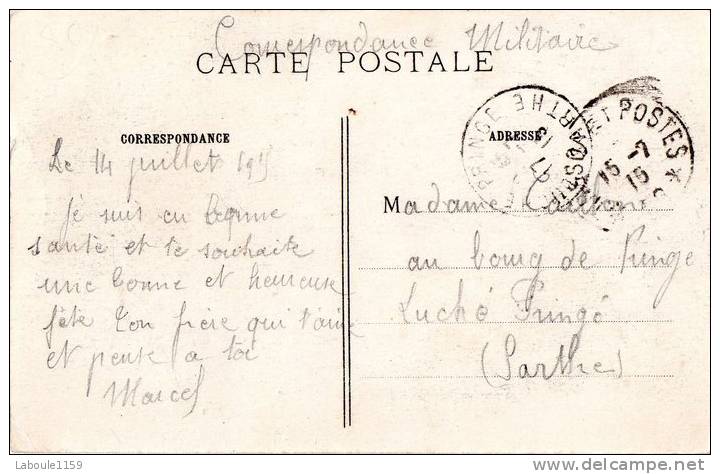 Correspondance Militaire
CARTE POSTALE
CORRESPONDANCE
ADRESSE
Le 14 juillet 1915
Je suis en bonne
santé et te souhaite
une bonne et heureuse
fête Ton frère qui t'aime
et pense a toi
Marcel
Madame
au bourg de Pringé
Luché Pringé
(Sarthe)
PRINGE SARTHE
ET POSTES *
15 -7
15
Laboule1159
www.delcampe.net